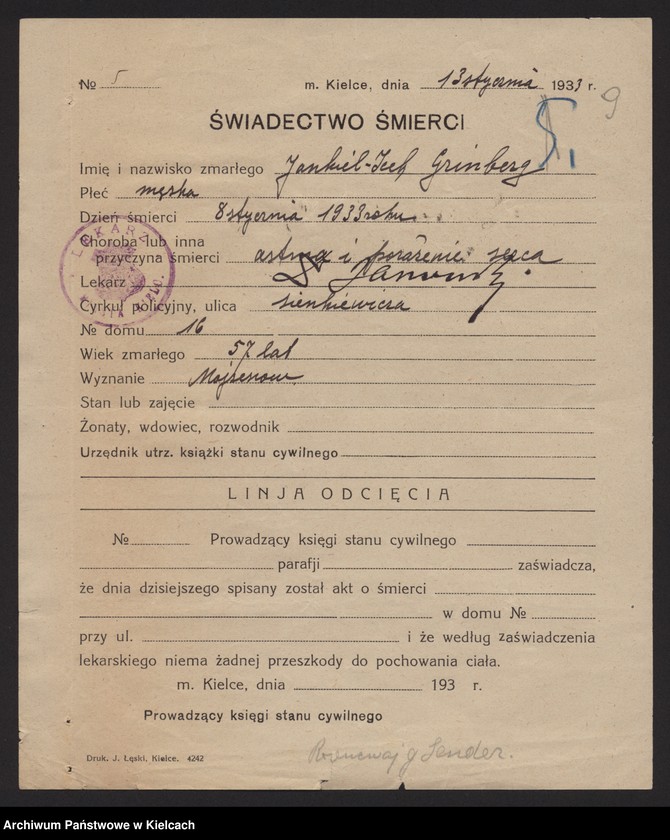 № 5 m. Kielce, dnia 13 stycznia 1933 r.
9
ŚWIADECTWO ŚMIERCI
5.
Imię i nazwisko zmarłego Jankiel-Icek Grinberg
Płeć męska
Dzień śmierci 8 stycznia 1933 roku
Choroba lub inna
przyczyna śmierci astma i porażenie serca
LEKARZ
Lekarz Dr
Cyrkuł policyjny, ulica Sienkiewicza
№ domu 16
Wiek zmarłego 57 lat
Wyznanie Mojżeszowe
Stan lub zajęcie
Żonaty, wdowiec, rozwodnik
Urzędnik utrz. książki stanu cywilnego
LINJA ODCIĘCIA
№ Prowadzący księgi stanu cywilnego
parafji zaświadcza,
że dnia dzisiejszego spisany został akt o śmierci
w domu №
przy ul. i że według zaświadczenia
lekarskiego niema żadnej przeszkody do pochowania ciała.
m. Kielce, dnia 193 r.
Prowadzący księgi stanu cywilnego
Druk. J. Łęski, Kielce. 4242
Sender.
Archiwum Państwowe w Kielcach